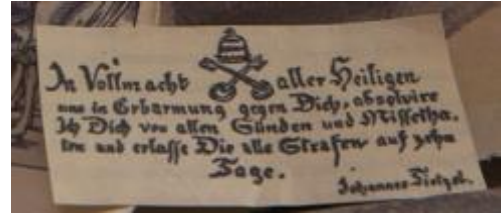 In Vollmacht aller Heiligen
und in Erbarmung gegen Dich, absolvire
Ich Dich von allen Sünden und Missetha-
ten und erlasse Die alle Strafen auf zehn
Tage.
Johannes Tietzel.